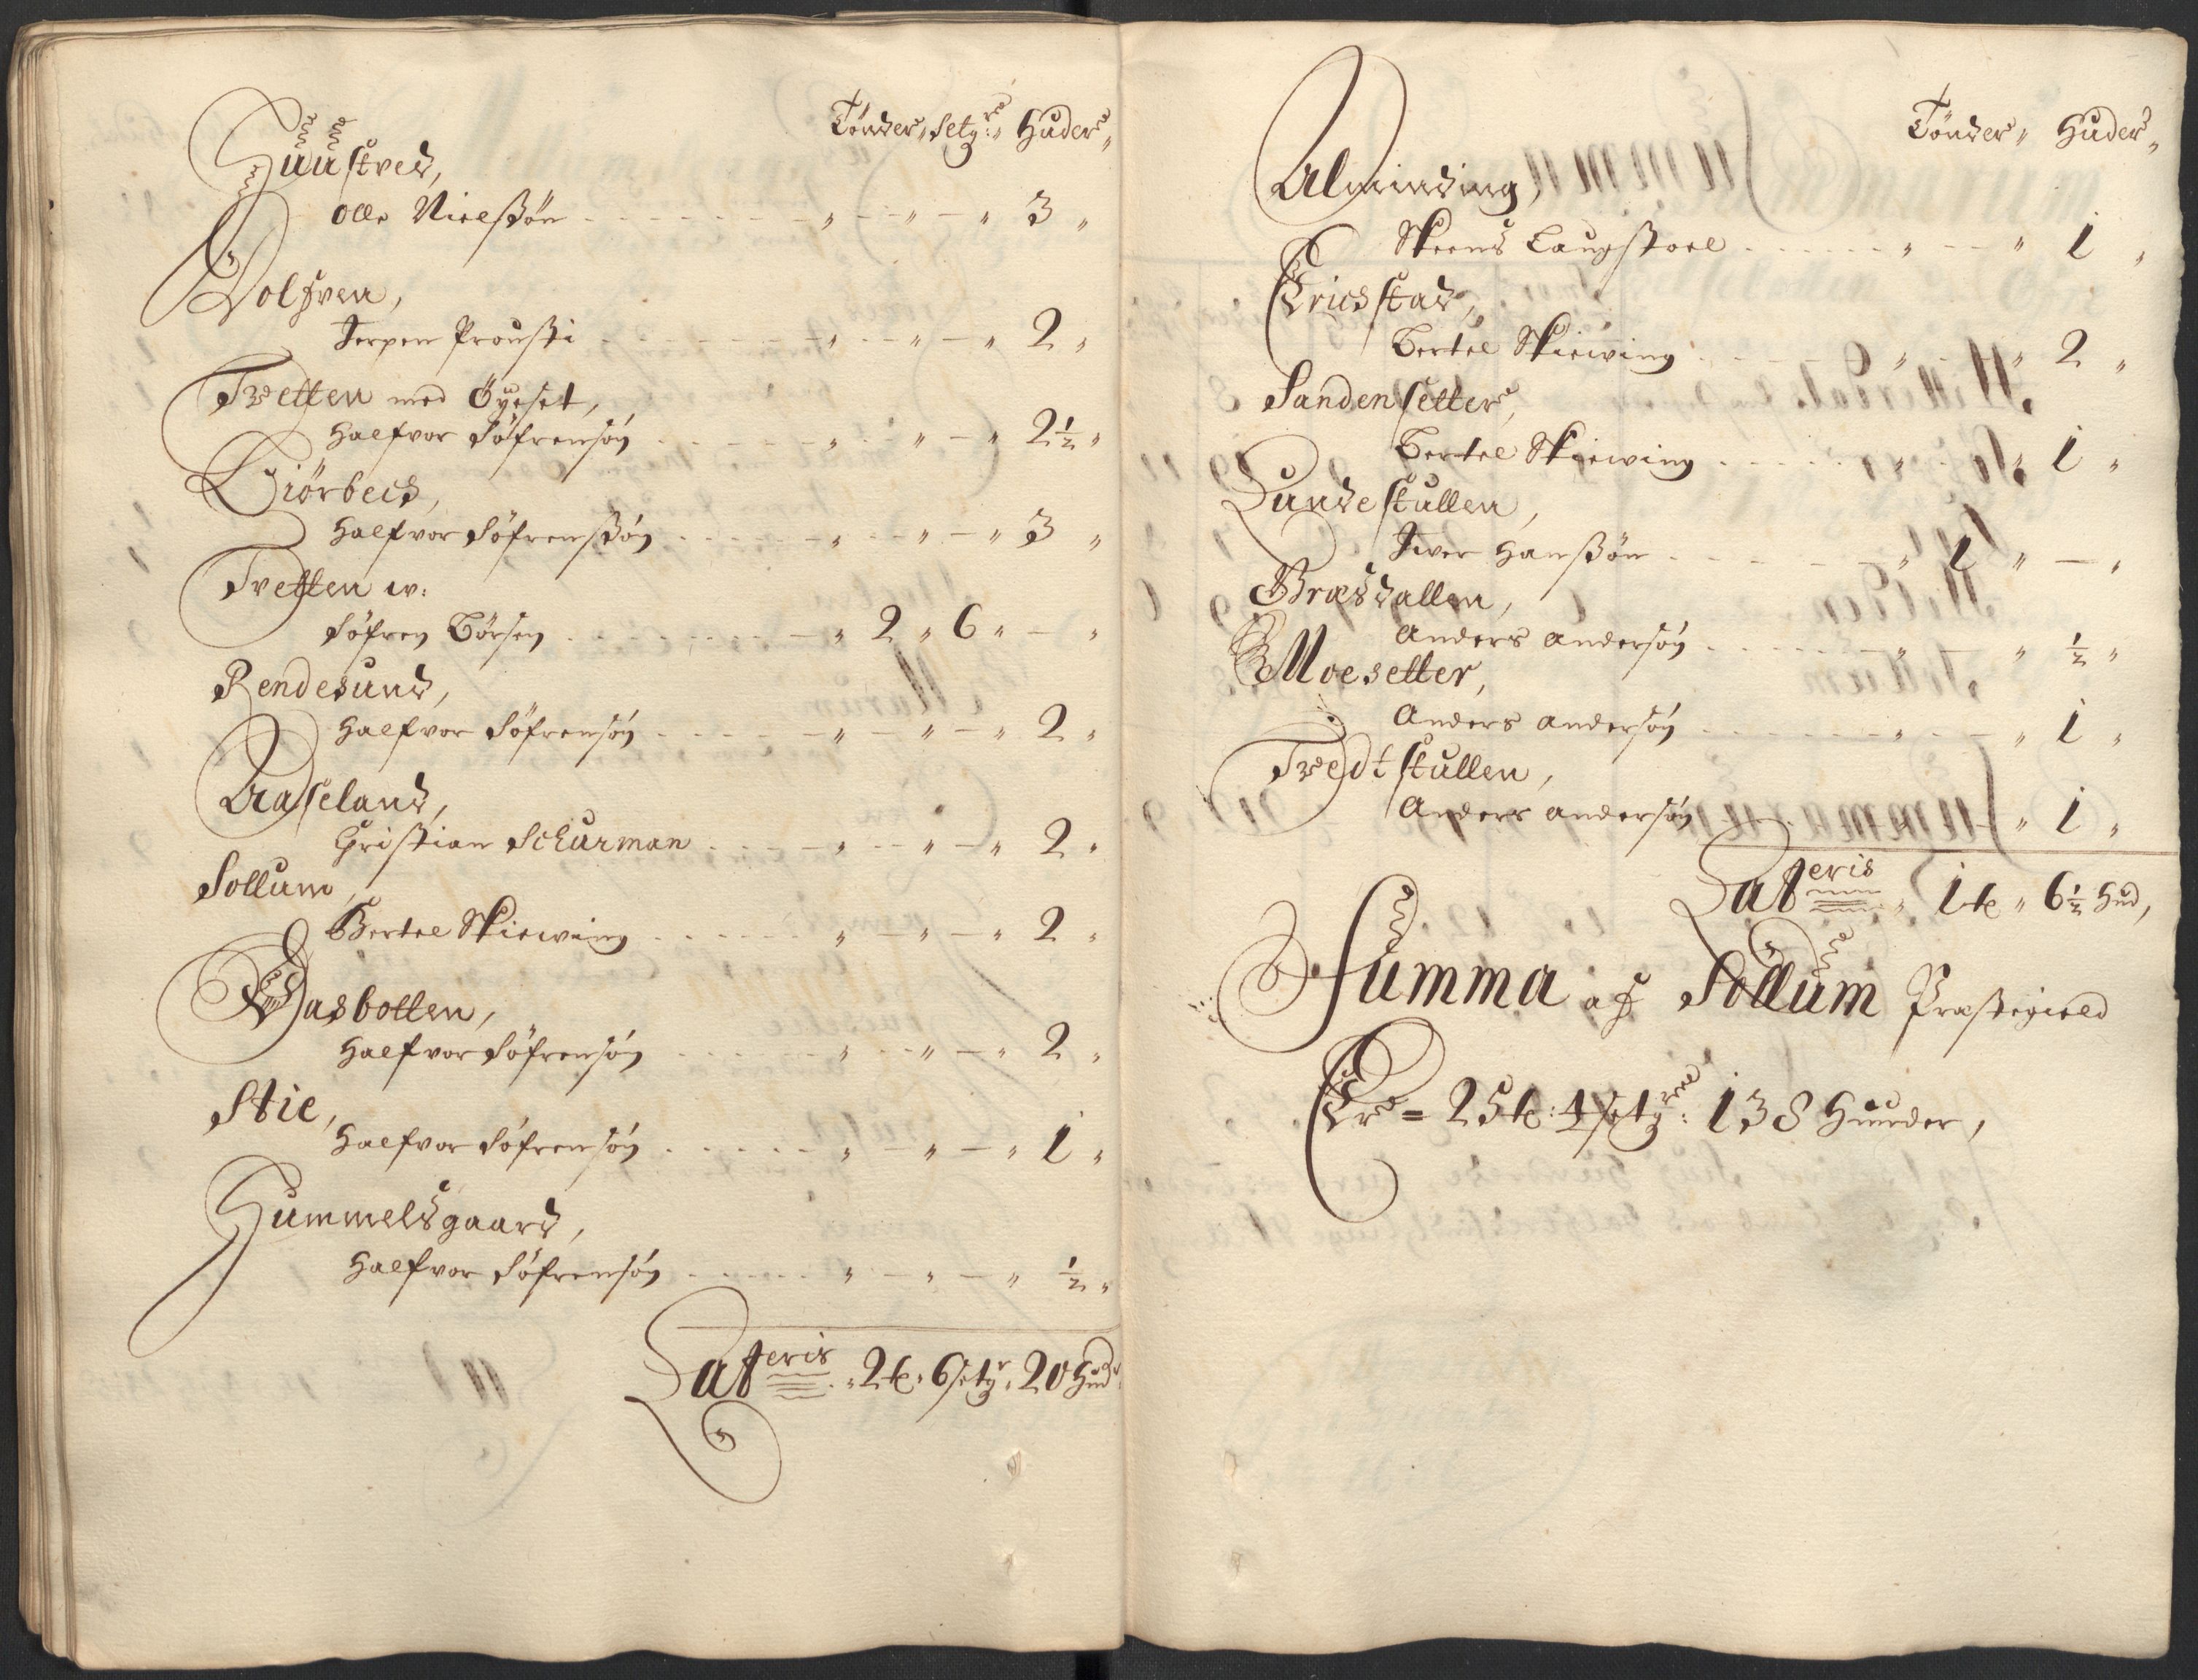 Tönder, Setg:re Huder,
Huustved,
Olle Nielßön - - - " - " - " 3 "
Dolfven,
Jerpen Proußti - - - " - " - " 2 "
Tvetten med Öyeset,
Halfvor Söfrensøn - - - " - " - " 2½ "
Giörbech,
Halfvor Söfrenßøn - - - " - " - " 3 "
Tvetten w:
Söfren Börsen - - - " 2 " 6 " - "
Rendesund,
Halfvor Söfrensøn - - - " - " - " 2 "
Aaseland,
Christian Schurman - - - " - " - " 2 "
Sollum,
Bertel Skiewing - - - " - " - " 2 "
Wasbotten,
Halfvor Söfrensøn - - - " - " - " 2 "
Stie,
Halfvor Söfrensøn - - - " - " - " 1 "
Hummelsgaard,
Halfvor Söfrensøn - - - " - " - " ½ "
Lateris " 2 tr " 6 setgr " 20 Hudr
Tönder, Huder,
Alminding,
Skeens Laugstoel - - - " - " 1 "
Ericsstad,
Bertel Skiewing - - - " - " 2 "
Sandensetter,
Bertel Skiewing - - - " - " 1 "
Lundestullen,
Iver Hanßön - - - " 1 " - "
Bradsdallen,
Anders Andersøn - - - " - " ½ "
Moesetter,
Anders Andersøn - - - " - " 1 "
Tvedtstullen,
Anders Andersøn - - - " - " 1 "
Lateris " 1 tr " 6½ Hud,
Summa af Sollum Præstegield
Er = 25 tr: 4 setg: 138 Huuder,